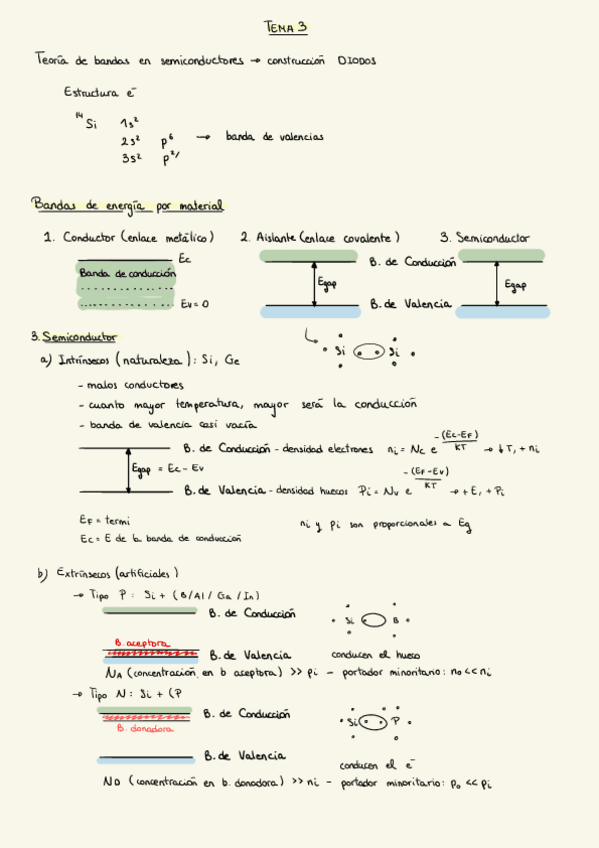 TEMA 3
Teoría de bandas en semiconductores → construcción DIODOS
Estructura e⁻
¹⁴Si 1s²
2s² p⁶ → banda de valencias
3s² p²/
Bandas de energía por material
1. Conductor (enlace metálico) 2. Aislante (enlace covalente) 3. Semiconductor
Ec
B. de Conducción
Banda de conducción
Egap Egap
Ev = 0
B. de Valencia
3. Semiconductor
Si Si
a) Intrínsecos (naturaleza): Si, Ge
- malos conductores
- cuanto mayor temperatura, mayor será la conducción
- banda de valencia casi vacía
B. de Conducción - densidad electrones ni = Nc e -(Ec-EF)/KT → ↓T, + ni
Egap = Ec - Ev
B. de Valencia - densidad huecos Pi = Nv e -(EF-Ev)/KT → + E, + Pi
EF = termi
ni y pi son proporcionales a Eg
Ec = E de la banda de conducción
b) Extrínsecos (artificiales)
→ Tipo P: Si + (B/Al/Ga/In)
B. de Conducción
Si B
B. aceptora
B. de Valencia
conducen el hueco
NA (concentración en b aceptora) >> pi - portador minoritario: no << ni
→ Tipo N: Si + (P
B. de Conducción
Si P
B. donadora
B. de Valencia
conducen el e⁻
ND (concentración en b. donadora) >> ni - portador minoritario: po << pi